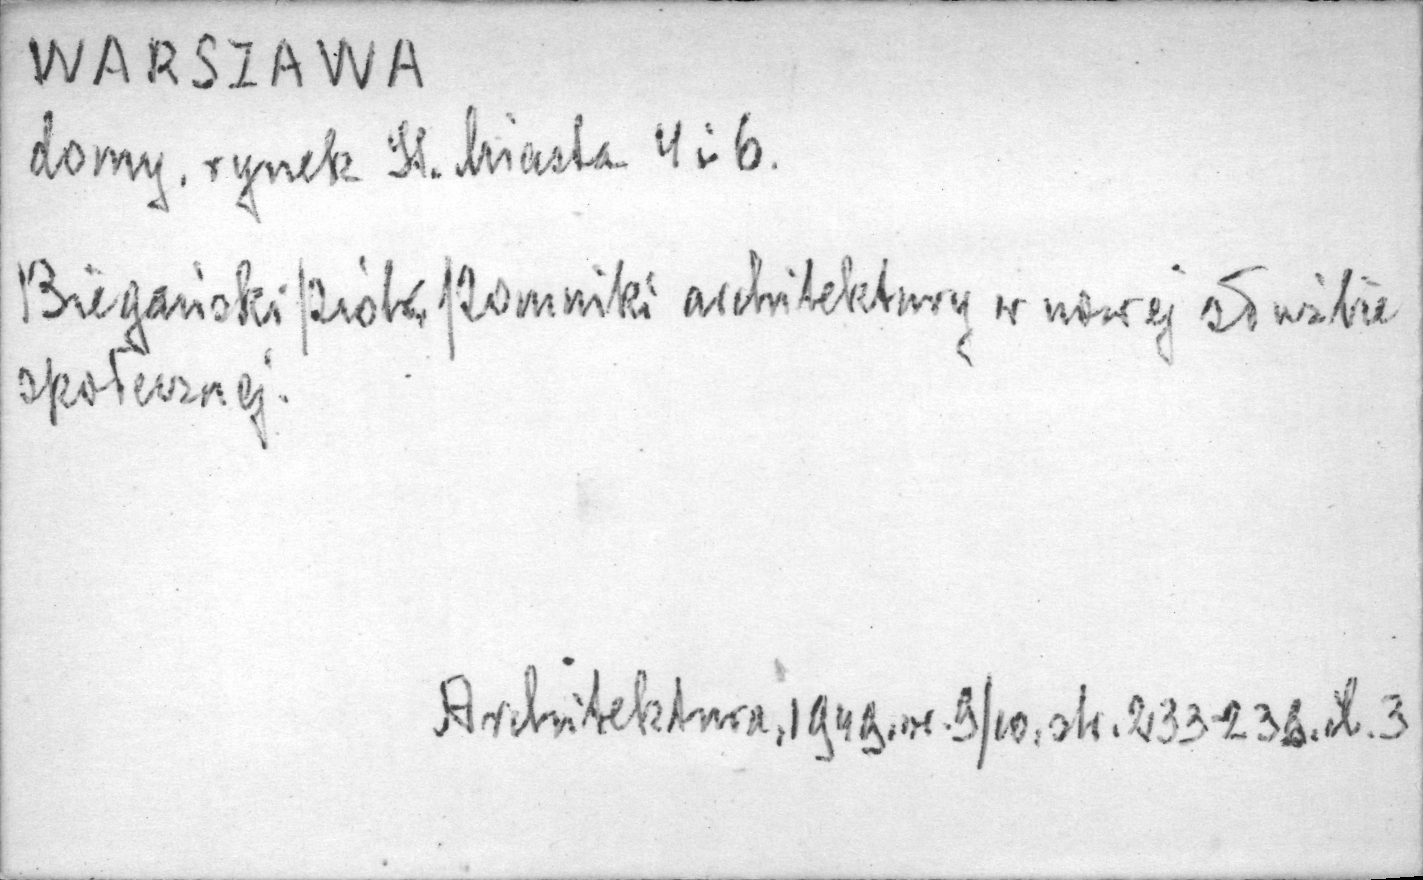 WARSZAWA
domy, rynek St. Miasta 4 i 6.
Biegański Piotr, Pomniki architektury w nowej służbie
społecznej.
Architektura, 1949, nr. 9/10, str. 233-238. il. 3